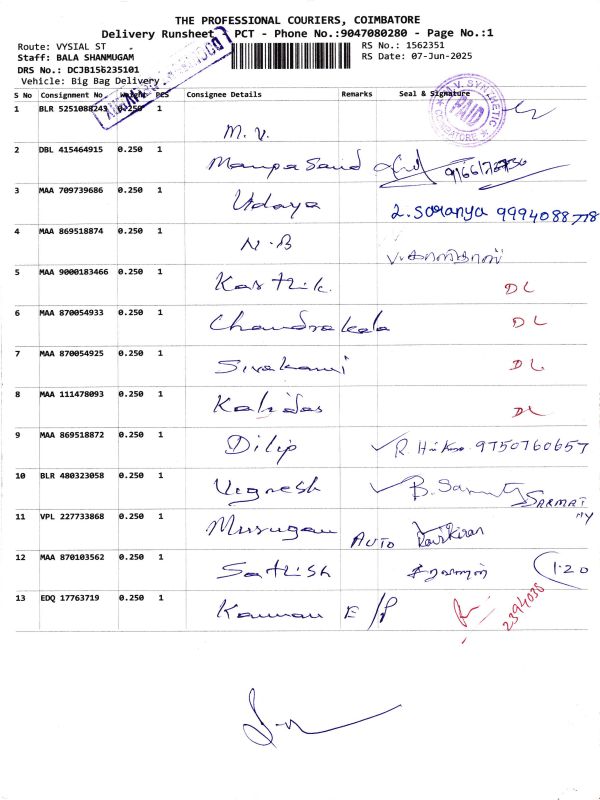 THE PROFESSIONAL COURIERS, COIMBATORE
Delivery Runsheet PCT - Phone No.:9047080280 - Page No.:1
Route: VYSIAL ST
RS No.: 1562351
Staff: BALA SHANMUGAM
RS Date: 07-Jun-2025
DRS No.: DCJB156235101
Vehicle: Big Bag Delivery
S No Consignment No. Weight PCS Consignee Details Remarks Seal & Signature
V. SYNTHETIC PAID COIMBATORE
1 BLR 5251088243 0.250 1 M. V.
2 DBL 415464915 0.250 1
3 MAA 709739686 0.250 1 Udaya 2. Saranya 9994088778
4 MAA 869518874 0.250 1 N.B
5 MAA 9000183466 0.250 1 Karthik. DL
6 MAA 870054933 0.250 1 Chandrakala DL
7 MAA 870054925 0.250 1 Sivakami DL
8 MAA 111478093 0.250 1 Kalidas DL
9 MAA 869518872 0.250 1 Dilip 9750760657
10 BLR 480323058 0.250 1 Vignesh
11 VPL 227733868 0.250 1 Murugan AUTO Ravikiran
12 MAA 870103562 0.250 1 Sathish 1.20
13 EDQ 17763719 0.250 1 Kannan E/P 2394038